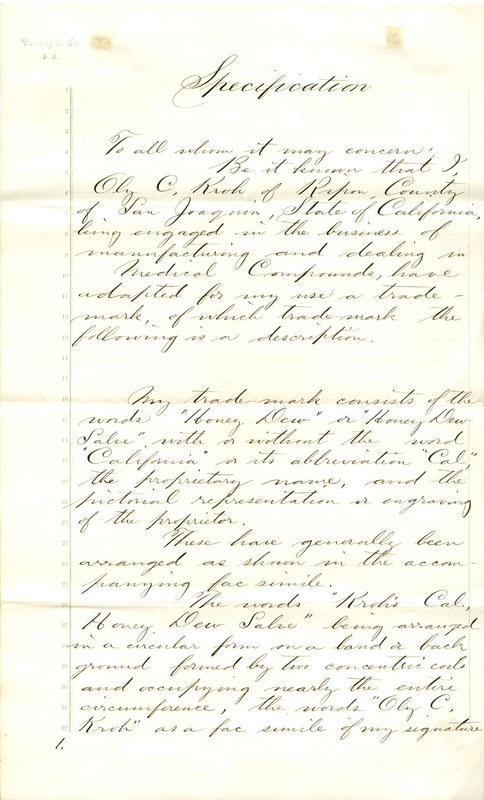 Dewey & Co.
S. F.
Specification
To all whom it may concern:
Be it known that I,
Oly C. Kroh of Ripon, County
of San Joaquin, State of California,
being engaged in the business of
manufacturing and dealing in
Medical Compounds, have
adapted for my use a trade-
mark, of which trade-mark the
following is a description.
My trade-mark consists of the
words "Honey Dew" or "Honey Dew
Salve" with or without the word
"California" or its abbreviation "Cal,"
the proprietary name, and the
pictorial representation or engraving
of the proprietor.
These have generally been
arranged as shown in the accom-
panying fac simile.
The words "Kroh's Cal.
Honey Dew Salve" being arranged
in a circular form on a band or back
ground formed by two concentric coils
and occupying nearly the entire
circumference, the words "Oly C.
Kroh" as a fac simile of my signature
1.